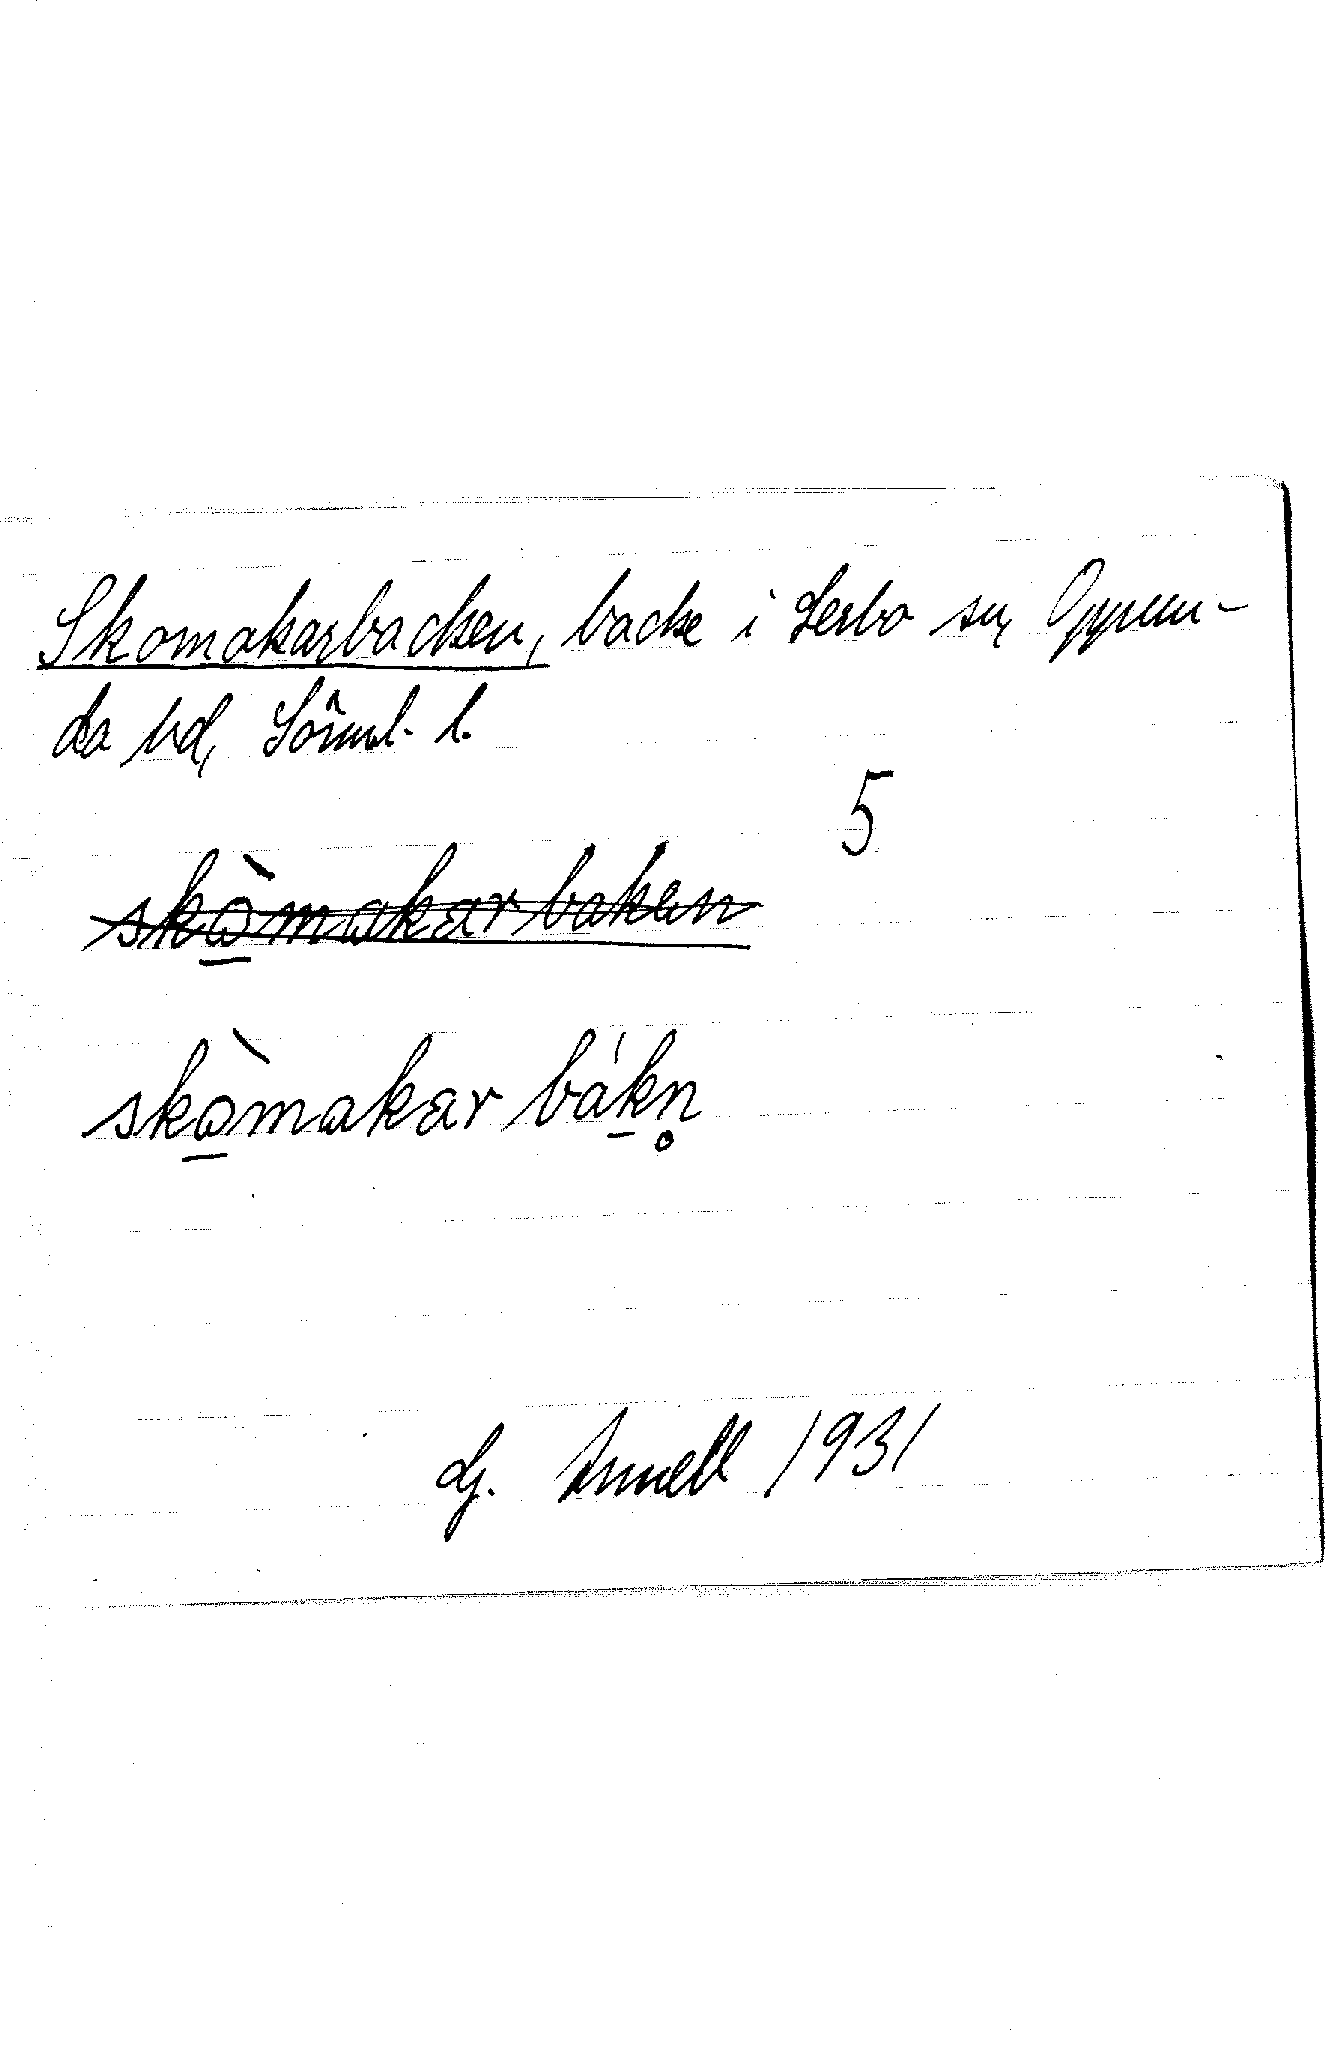 Skomakarbacken, backe i Lerbo sn, Oppun-
da hd, Sörml. l.
5
skòmakarbaken
skòmakar bákn̥
Gj. Annell 1931